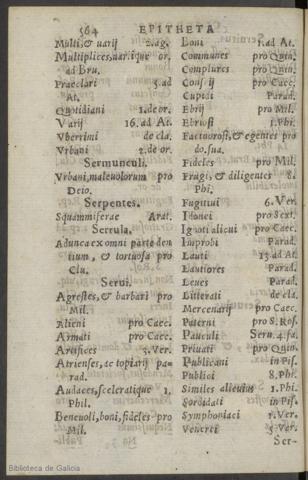 564 EPITHETA
Multi, & varij 2. ag.
Multiplices, nar. ique or.
ad Bru.
Praeclari 5. ad
At.
Quotidiani 1. de or.
Varij 16. ad At.
Vberrimi de cla.
Vrbani 2. de or.
Sermunculi.
Vrbani, maleuolorum pro
Deio.
Serpentes.
Squammiferae Arat.
Serrula.
Adunca ex omni parte den
tium, & tortuosa pro
Clu.
Serui.
Agrestes, & barbari pro
Mil.
Alieni pro Caec.
Armati pro Caec.
Artifices 3. Ver.
Atrienses, ac topiarij pa-
rad.
Audaces, sceleratique 1.
Phil.
Beneuoli, boni, fideles pro
Mil.
Boni 1. ad At.
Communes pro Quin.
Complures pro Quin.
Conscij pro Caec.
Cupidi Parad.
Ebrij pro Mil.
Ebriosi 1. Phi.
Facinorosi, & egentes pro
do. sua.
Fideles pro Mil.
Frugi, & diligentes 8.
Phi.
Fugitiui 6. Ver.
Idonei pro Sext.
Ignoti alicui pro Caec.
Improbi Parad.
Lauti 13. ad At
Lautiores Parad.
Leues Parad.
Litterati de cla.
Mercenarij pro Caec.
Paterni pro S. Ros.
Pauculi Seru. 4. fa.
Priuati pro Quin.
Publicani in Pis.
Publici 8. Phi.
Similes alicuius 1. Phi.
Sordidati in Pis.
Symphoniaci 1. Ver.
Venerei 5. Ver.
Ser-
Biblioteca de Galicia